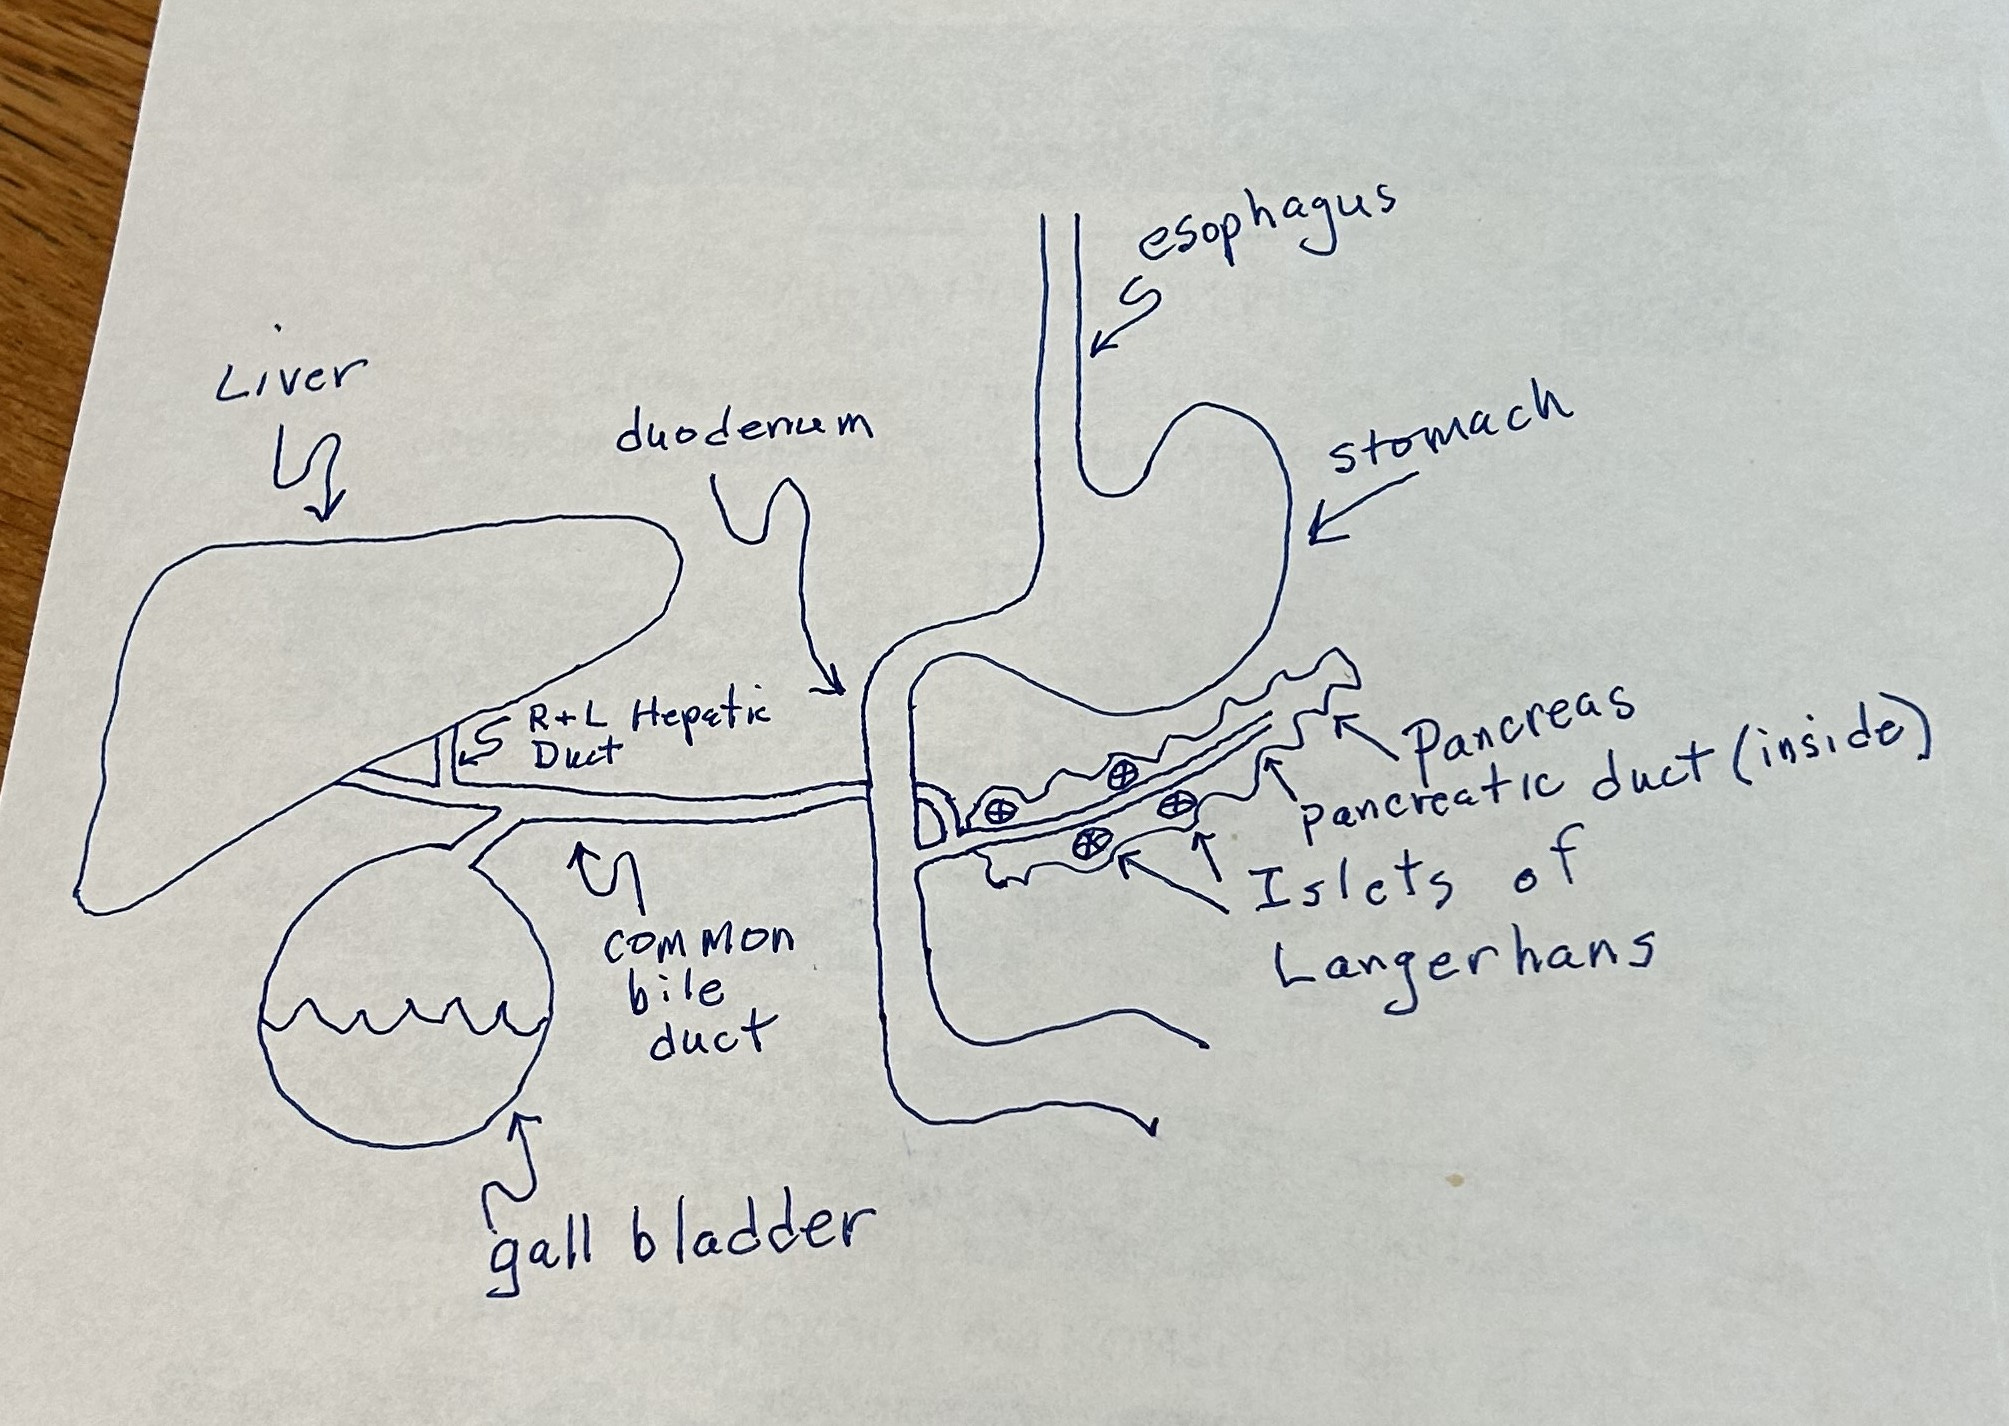 esophagus
Liver
duodenum
stomach
R+L Hepatic
Duct
Pancreas
pancreatic duct (inside)
Islets of
Langerhans
common
bile
duct
gall bladder